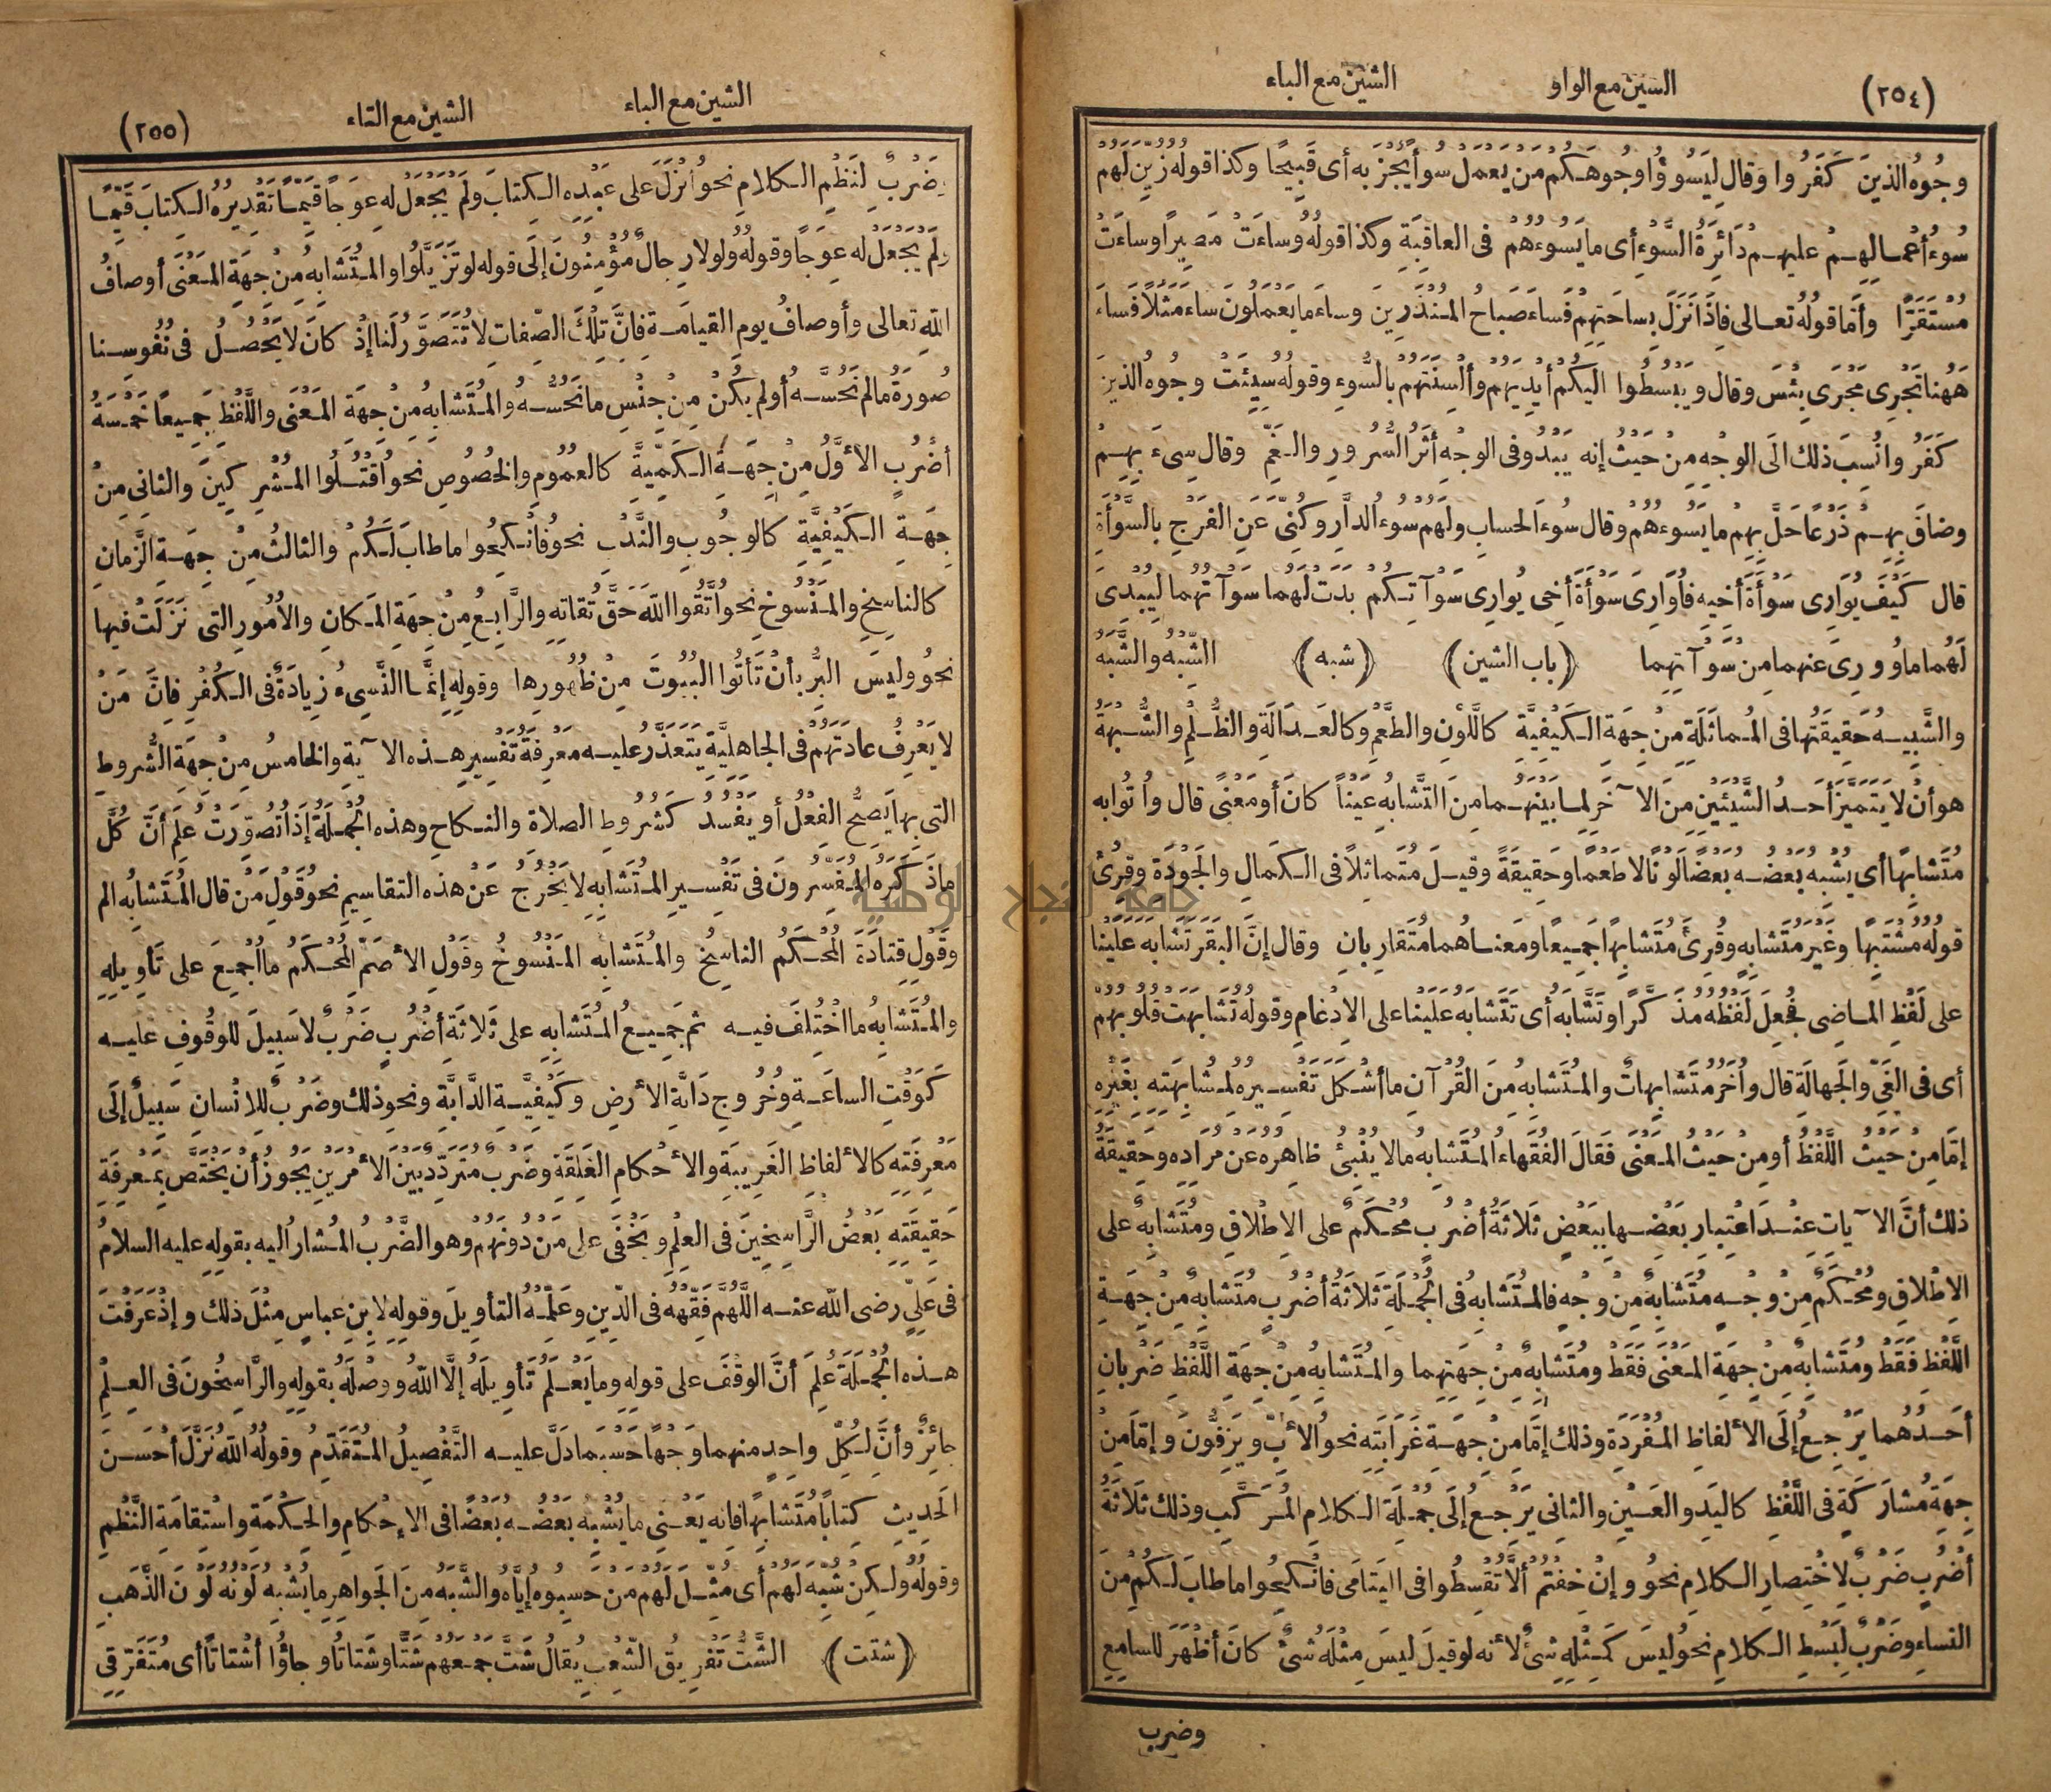 (٢٥٤) السين مع الواو الشين مع الباء
وجوه الذين كفروا وقال ليسوؤا وجوهكم من يعمل سوأ يجز به أى قبيحا وكذا قوله زين لهم
سوء أعمالهم عليهم دائرة السوء أى ما يسوءهم فى العاقبة وكذا قوله وساءت مصيرا وساءت
مستقرا وأما قوله تعالى فاذا نزل بساحتهم فساء صباح المنذرين وساء ما يعملون ساء مثلا فساء
ههنا تجرى مجرى بئس وقال ويبسطوا اليكم أيديهم وألسنتهم بالسوء وقوله سيئت وجوه الذين
كفروا نسب ذلك الى الوجه من حيث إنه يبدو فى الوجه أثر السرور والغم وقال سىء بهم
وضاق بهم ذرعا حل بهم ما يسوءهم وقال سوء الحساب ولهم سوء الدار وكنى عن الفرج بالسوأة
قال كيف يوارى سوأة أخيه فأوارى سوأة أخى يوارى سوآتكم بدت لهما سوآتهما ليبدى
لهما ما وورى عنهما من سوآتهما (باب الشين) (شبه) الشبه والشبه
والشبيه حقيقتها فى المماثلة من جهة الكيفية كاللون والطعم وكالعدالة والظلم والشبهة
هو أن لا يتميز أحد الشيئين من الآخر لما بينهما من التشابه عينا كان أو معنى قال وأتوا به
متشابها أى يشبه بعضه بعضا لونا لا طعما وحقيقة وقيل متماثلا فى الكمال والجودة وقرئ
قوله مشتبها وغير متشابه وقرئ متشابها جميعا ومعناهما متقاربان وقال إن البقر تشابه علينا
على لفظ الماضى فجعل لفظه مذكرا وتشابه أى تتشابه علينا على الادغام وقوله تشابهت قلوبهم
أى فى الغى والجهالة قال وأخر متشابهات والمتشابه من القرآن ما أشكل تفسيره لمشابهته بغيره
إما من حيث اللفظ أو من حيث المعنى فقال الفقهاء المتشابه ما لا ينبئ ظاهره عن مراده وحقيقة
ذلك أن الآيات عند اعتبار بعضها ببعض ثلاثة أضرب محكم على الاطلاق ومتشابه على
الاطلاق ومحكم من وجه متشابه من وجه فالمتشابه فى الجملة ثلاثة أضرب متشابه من جهة
اللفظ فقط ومتشابه من جهة المعنى فقط ومتشابه من جهتهما والمتشابه من جهة اللفظ ضربان
أحدهما يرجع إلى الألفاظ المفردة وذلك إما من جهة غرابته نحو الأب ويزفون وإما من
جهة مشاركة فى اللفظ كاليد والعين والثانى يرجع إلى جملة الكلام المركب وذلك ثلاثة
أضرب ضرب لاختصار الكلام نحو وإن خفتم ألا تقسطوا فى اليتامى فانكحوا ما طاب لكم من
النساء وضرب لبسط الكلام نحو ليس كمثله شئ لأنه لو قيل ليس مثله شئ كان أظهر للسامع
وضرب
الشين مع الباء الشين مع التاء (٢٥٥)
وضرب لنظم الكلام نحو أنزل على عبده الكتاب ولم يجعل له عوجا قيما تقديره الكتاب قيما
ولم يجعل له عوجا وقوله ولولا رجال مؤمنون إلى قوله لو تزيلوا والمتشابه من جهة المعنى أوصاف
الله تعالى وأوصاف يوم القيامة فان تلك الصفات لا تتصور لنا إذ كان لا يحصل فى نفوسنا
صورة ما لم نحسه أو لم يكن من جنس ما نحسه والمتشابه من جهة المعنى واللفظ جميعا خمسة
أضرب الأول من جهة الكمية كالعموم والخصوص نحو اقتلوا المشركين والثانى من
جهة الكيفية كالوجوب والندب نحو فانكحوا ما طاب لكم والثالث من جهة الزمان
كالناسخ والمنسوخ نحو اتقوا الله حق تقاته والرابع من جهة المكان والأمور التى نزلت فيها
نحو وليس البر بأن تأتوا البيوت من ظهورها وقوله إنما النسىء زيادة فى الكفر فان من
لا يعرف عادتهم فى الجاهلية يتعذر عليه معرفة تفسير هذه الآية والخامس من جهة الشروط
التى بها يصح الفعل أو يفسد كشروط الصلاة والنكاح وهذه الجملة إذا تصورت علم أن كل
ما ذكره المفسرون فى تفسير المتشابه لا يخرج عن هذه التقاسيم نحو قول من قال المتشابه الم
وقول قتادة المحكم الناسخ والمتشابه المنسوخ وقول الأصم المحكم ما أجمع على تأويله
والمتشابه ما اختلف فيه ثم جميع المتشابه على ثلاثة أضرب ضرب لا سبيل للوقوف عليه
كوقت الساعة وخروج دابة الأرض وكيفية الدابة ونحو ذلك وضرب للانسان سبيل إلى
معرفته كالألفاظ الغريبة والأحكام الغلقة وضرب متردد بين الأمرين يجوز أن يختص بمعرفة
حقيقته بعض الراسخين فى العلم ويخفى على من دونهم وهو الضرب المشار اليه بقوله عليه السلام
فى على رضى الله عنه اللهم فقهه فى الدين وعلمه التأويل وقوله لابن عباس مثل ذلك وإذ عرفت
هذه الجملة علم أن الوقف على قوله وما يعلم تأويله إلا الله ووصله بقوله والراسخون فى العلم
جائز وأن لكل واحد منهما وجها حسبما دل عليه التفصيل المتقدم وقوله الله نزل أحسن
الحديث كتابا متشابها فانه يعنى ما يشبه بعضه بعضا فى الإحكام والحكمة واستقامة النظم
وقوله ولكن شبه لهم أى مثل لهم من حسبوه إياه والشبه من الجواهر ما يشبه لونه لون الذهب
(شتت) الشت تفريق الشعب يقال شت جمعهم شتا وشتاتا وجاؤا أشتاتا أى متفرقى
جامعة النجاح الوطنية